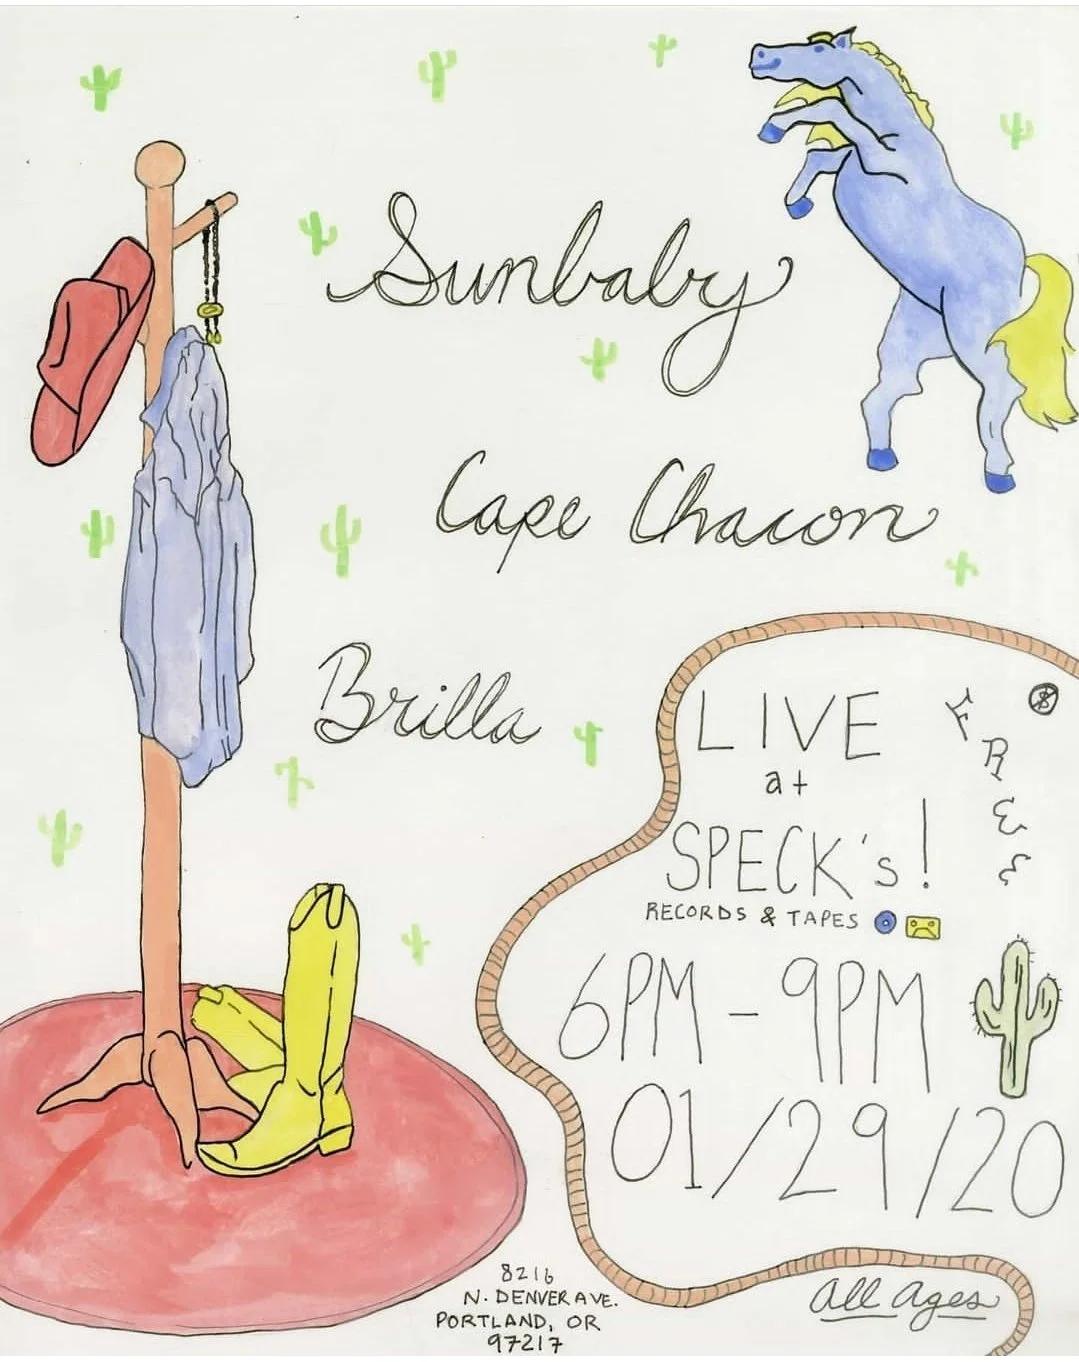 Sunbaby
Cape Chacon
Brilla
LIVE
at
SPECK's!
RECORDS & TAPES
FREE
$
6PM - 9PM
01/29/20
All Ages
8216
N. DENVER AVE.
PORTLAND, OR
97217